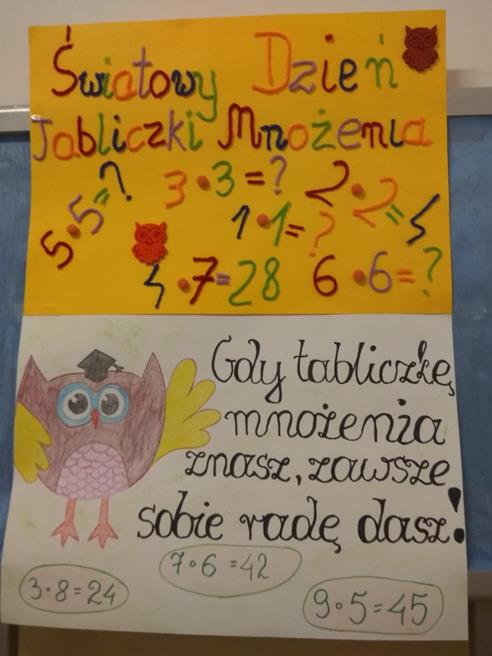 Światowy Dzień
Tabliczki Mnożenia
5·5=? 3·3=? 2·2=4
1·1=?
4·7=28 6·6=?
Gdy tabliczkę
mnożenia
znasz, zawsze
sobie radę dasz!
3·8=24 7·6=42 9·5=45